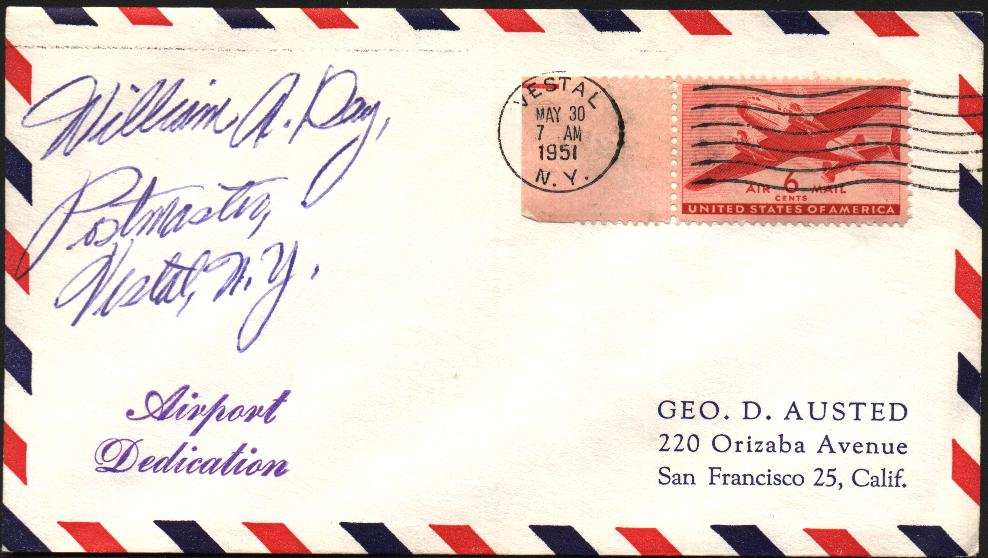 William A. Day,
Postmaster,
Vestal, N.Y.
VESTAL
MAY 30
7 AM
1951
N.Y.
AIR 6 MAIL
CENTS
UNITED STATES OF AMERICA
Airport
Dedication
GEO. D. AUSTED
220 Orizaba Avenue
San Francisco 25, Calif.